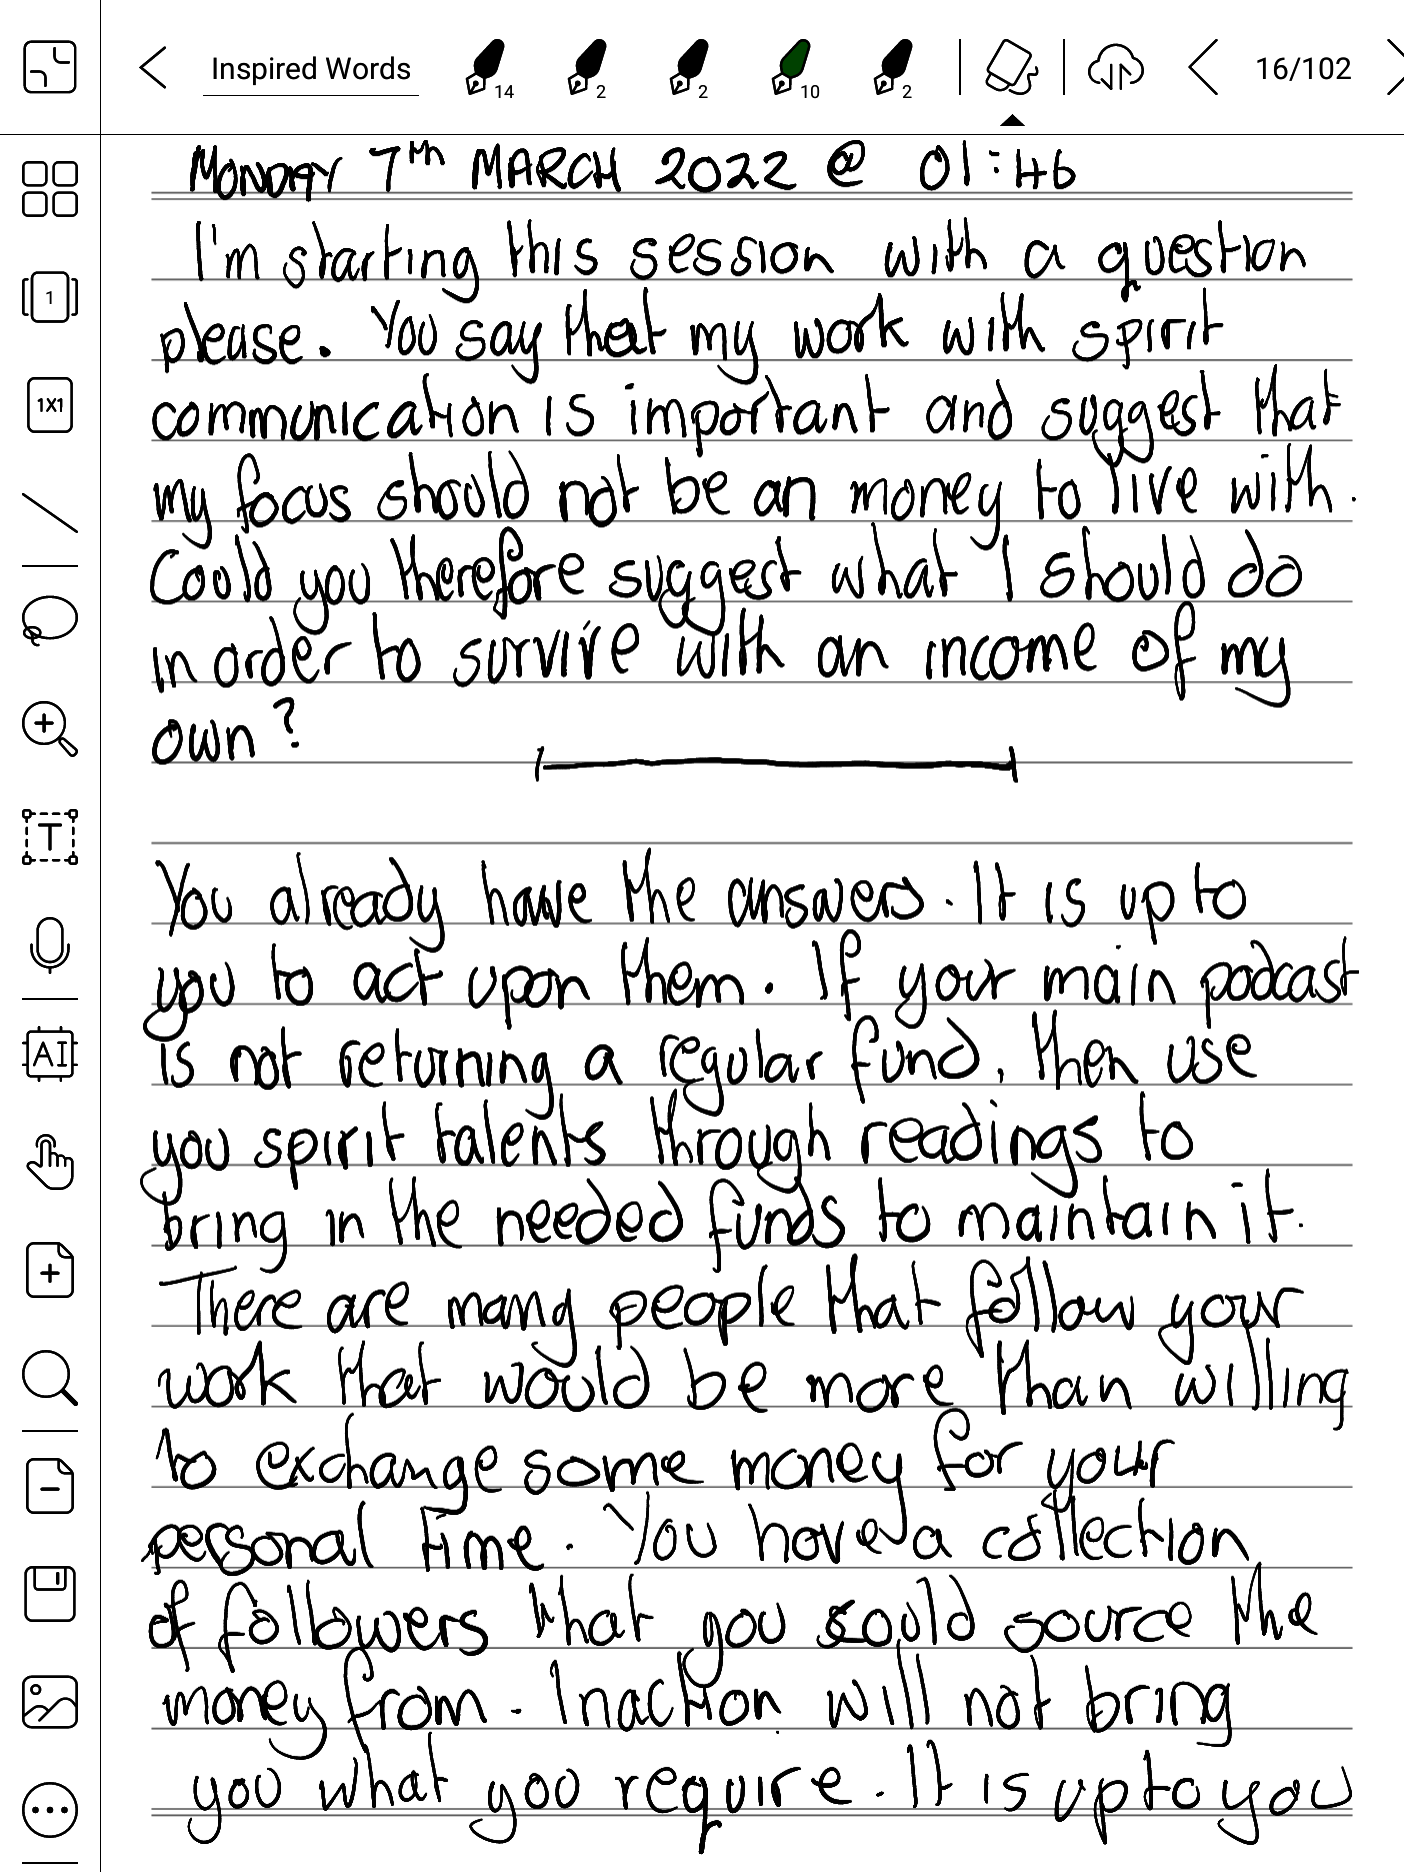 Inspired Words
14
2
2
10
2
16/102
1
1X1
T
AI
MONDAY 7th MARCH 2022 @ 01:46
I'm starting this session with a question
please. You say that my work with spirit
communication is important and suggest that
my focus should not be an money to live with.
Could you therefore suggest what I should do
in order to survive with an income of my
own?
You already have the answers. It is up to
you to act upon them. If your main podcast
is not returning a regular fund, then use
you spirit talents through readings to
bring in the needed funds to maintain it.
There are many people that follow your
work that would be more than willing
to exchange some money for your
personal time. You have a collection
of followers that you could source the
money from. Inaction will not bring
you what you require. It is up to you